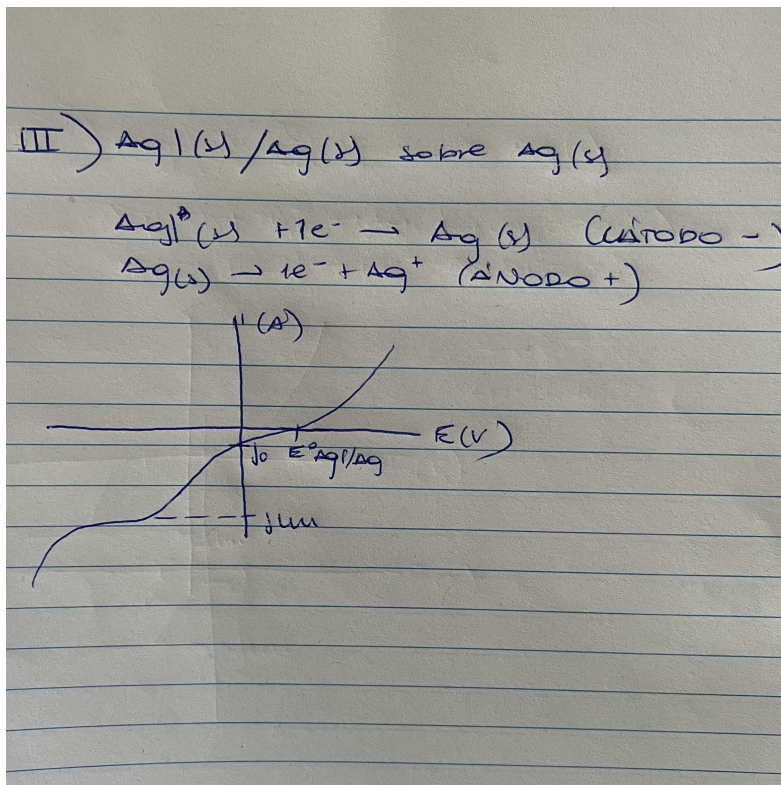 III) Ag|(s) /Ag(s) sobre Ag(s)
Ag| (s) +1e- → Ag (s) (CÁTODO -)
Ag(s) → 1e- + Ag+ (ÁNODO +)
(A)
E(V)
jo E° Ag|/Ag
jlim